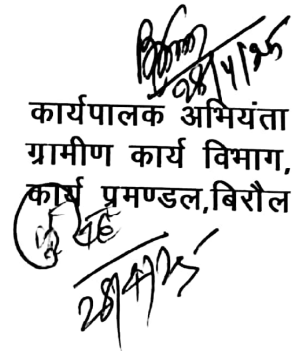 28/4/25
कार्यपालक अभियंता
ग्रामीण कार्य विभाग,
कार्य प्रमण्डल,बिरौल
28/4/25